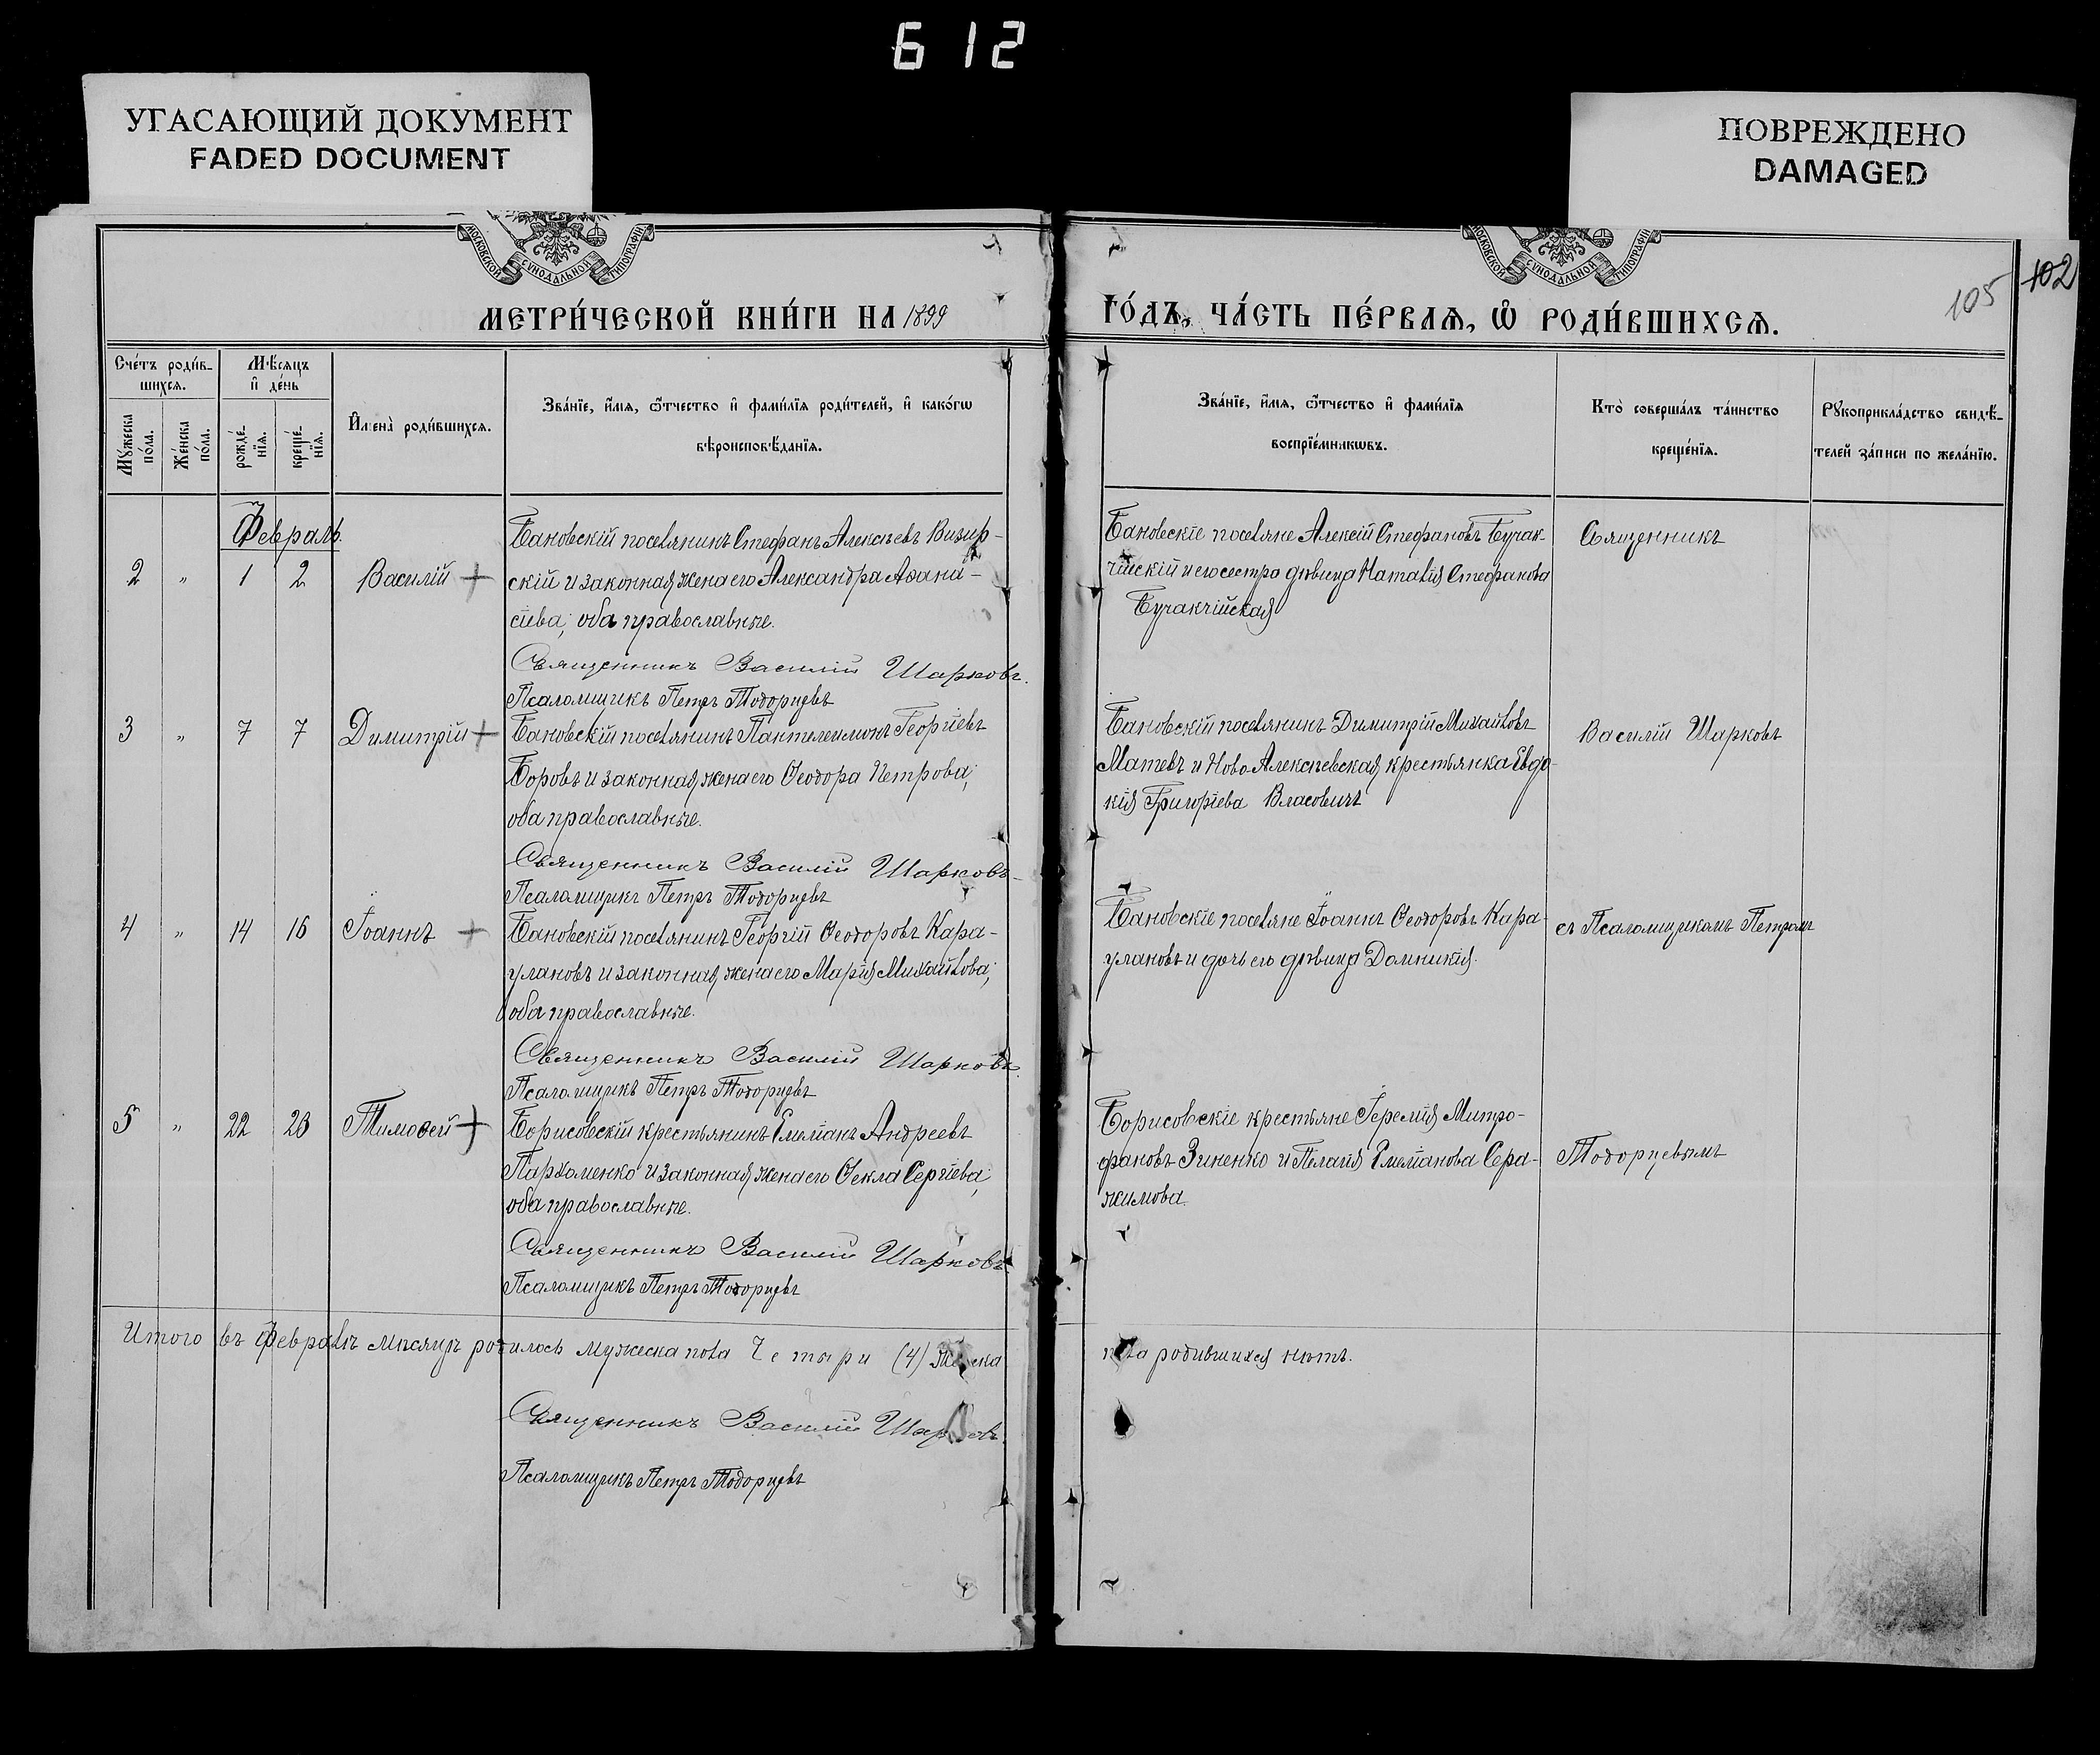 612
УГАСАЮЩИЙ ДОКУМЕНТ
FADED DOCUMENT
ПОВРЕЖДЕНО
DAMAGED
МОСКОВСКОЙ СѴНОДАЛЬНОЙ ТИПОГРАФІИ
МОСКОВСКОЙ СѴНОДАЛЬНОЙ ТИПОГРАФІИ
105 102
МЕТРИ́ЧЕСКОЙ КНИ́ГИ НА 1899
ГО́ДЪ, ЧА́СТЬ ПЕ́РВАѦ, Ѽ РОДИ́ВШИХСѦ.
Сче́тъ роди́в-
шихсѧ.
Мѣ́сѧцъ
и҆ де́нь
Мꙋ́жеска
по́ла.
Же́нска
по́ла.
рожде́-
нїѧ.
креще́-
нїѧ.
И҆мена̀ роди́вшихсѧ.
Зва́нїе, и҆́мѧ, ѻ҆́тчество и҆ фами́лїѧ роди́телей, и҆ како́гѡ
вѣроисповѣ́данїѧ.
Зва́нїе, и҆́мѧ, ѻ҆́тчество и҆ фами́лїѧ
воспрїе́мникѡвъ.
Кто̀ соверша́лъ та́инство
креще́нїѧ.
Рꙋкоприкла́дство свидѣ́-
телей за́писи по жела́нїю.
Февраль.
2 " 1 2 Василій +
Бановскій поселянинъ Стефанъ Алексѣевъ Визир-
скій и законная жена его Александра Афана-
сіева, оба православные.
Священникъ Василій Шарковъ.
Псаломщикъ Петръ Тодорцевъ
Бановскіе поселяне Алексій Стефановъ Бучак-
чійскій и его сестра дѣвица Наталія Стефанова
Бучакчійская
Священникъ
3 " 7 7 Димитрій +
Бановскій поселянинъ Пантелеимонъ Георгіевъ
Боровъ и законная жена его Ѳеодора Петрова;
оба православные.
Священникъ Василій Шарковъ
Псаломщикъ Петръ Тодорцевъ
Бановскій поселянинъ Димитрій Михайловъ
Матевъ и Ново Алексѣевская крестьянка Евдо-
кія Григоріева Власовичъ
Василій Шарковъ
4 " 14 16 Іоаннъ +
Бановскій поселянинъ Георгій Ѳеодоровъ Кара-
улановъ и законная жена его Марія Михайлова;
оба православные.
Священникъ Василій Шарковъ.
Псаломщикъ Петръ Тодорцевъ
Бановскіе поселяне Іоаннъ Ѳеодоровъ Кара-
улановъ и дочь его дѣвица Домникія.
съ Псаломщикомъ Петромъ
5 " 22 23 Тимоѳей +
Борисовскій крестьянинъ Емеліанъ Андреевъ
Пархоменко и законная жена его Ѳекла Сергіева,
оба православные.
Священникъ Василій Шарковъ.
Псаломщикъ Петръ Тодорцевъ
Борисовскіе крестьяне Іеремія Митро-
фановъ Зиненко и Пелагія Емеліанова Сера-
жимова.
Тодорцевымъ
Итого въ февралѣ мѣсяцѣ родилось мужеска пола Четыри (4) Женска
пола родившихся нѣтъ.
Священникъ Василій Шарковъ.
Псаломщикъ Петръ Тодорцевъ